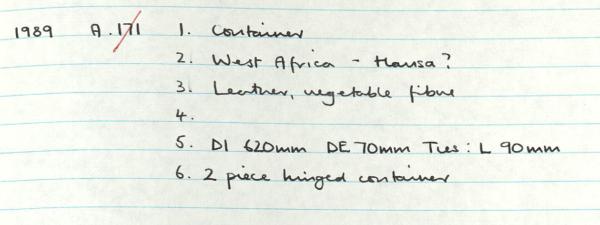 1989 A.171 1. Container
2. West Africa - Hausa?
3. Leather, vegetable fibre
4.
5. DI 620mm DE 70mm Ties: L 90mm
6. 2 piece hinged container